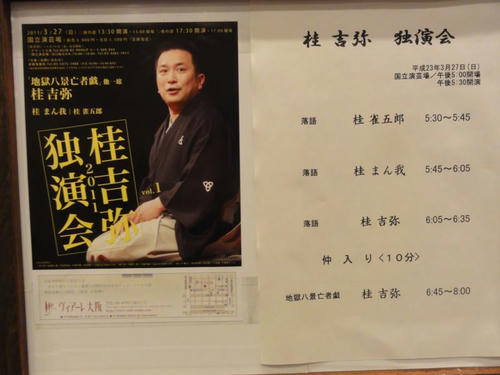 2011/3/27(日)
13:30開演
17:30開演
国立演芸場
「地獄八景亡者戯」他一席
桂 吉弥
桂 まん我 | 桂 雀五郎
桂吉弥
2011
独演会
vol.1
ヴィアーレ大阪
桂 吉弥 独演会
平成23年3月27日(日)
国立演芸場/午後5:00開場
午後5:30開演
落語 桂 雀五郎 5:30~5:45
落語 桂 まん我 5:45~6:05
落語 桂 吉弥 6:05~6:35
仲 入 り <10分>
地獄八景亡者戯 桂 吉弥 6:45~8:00